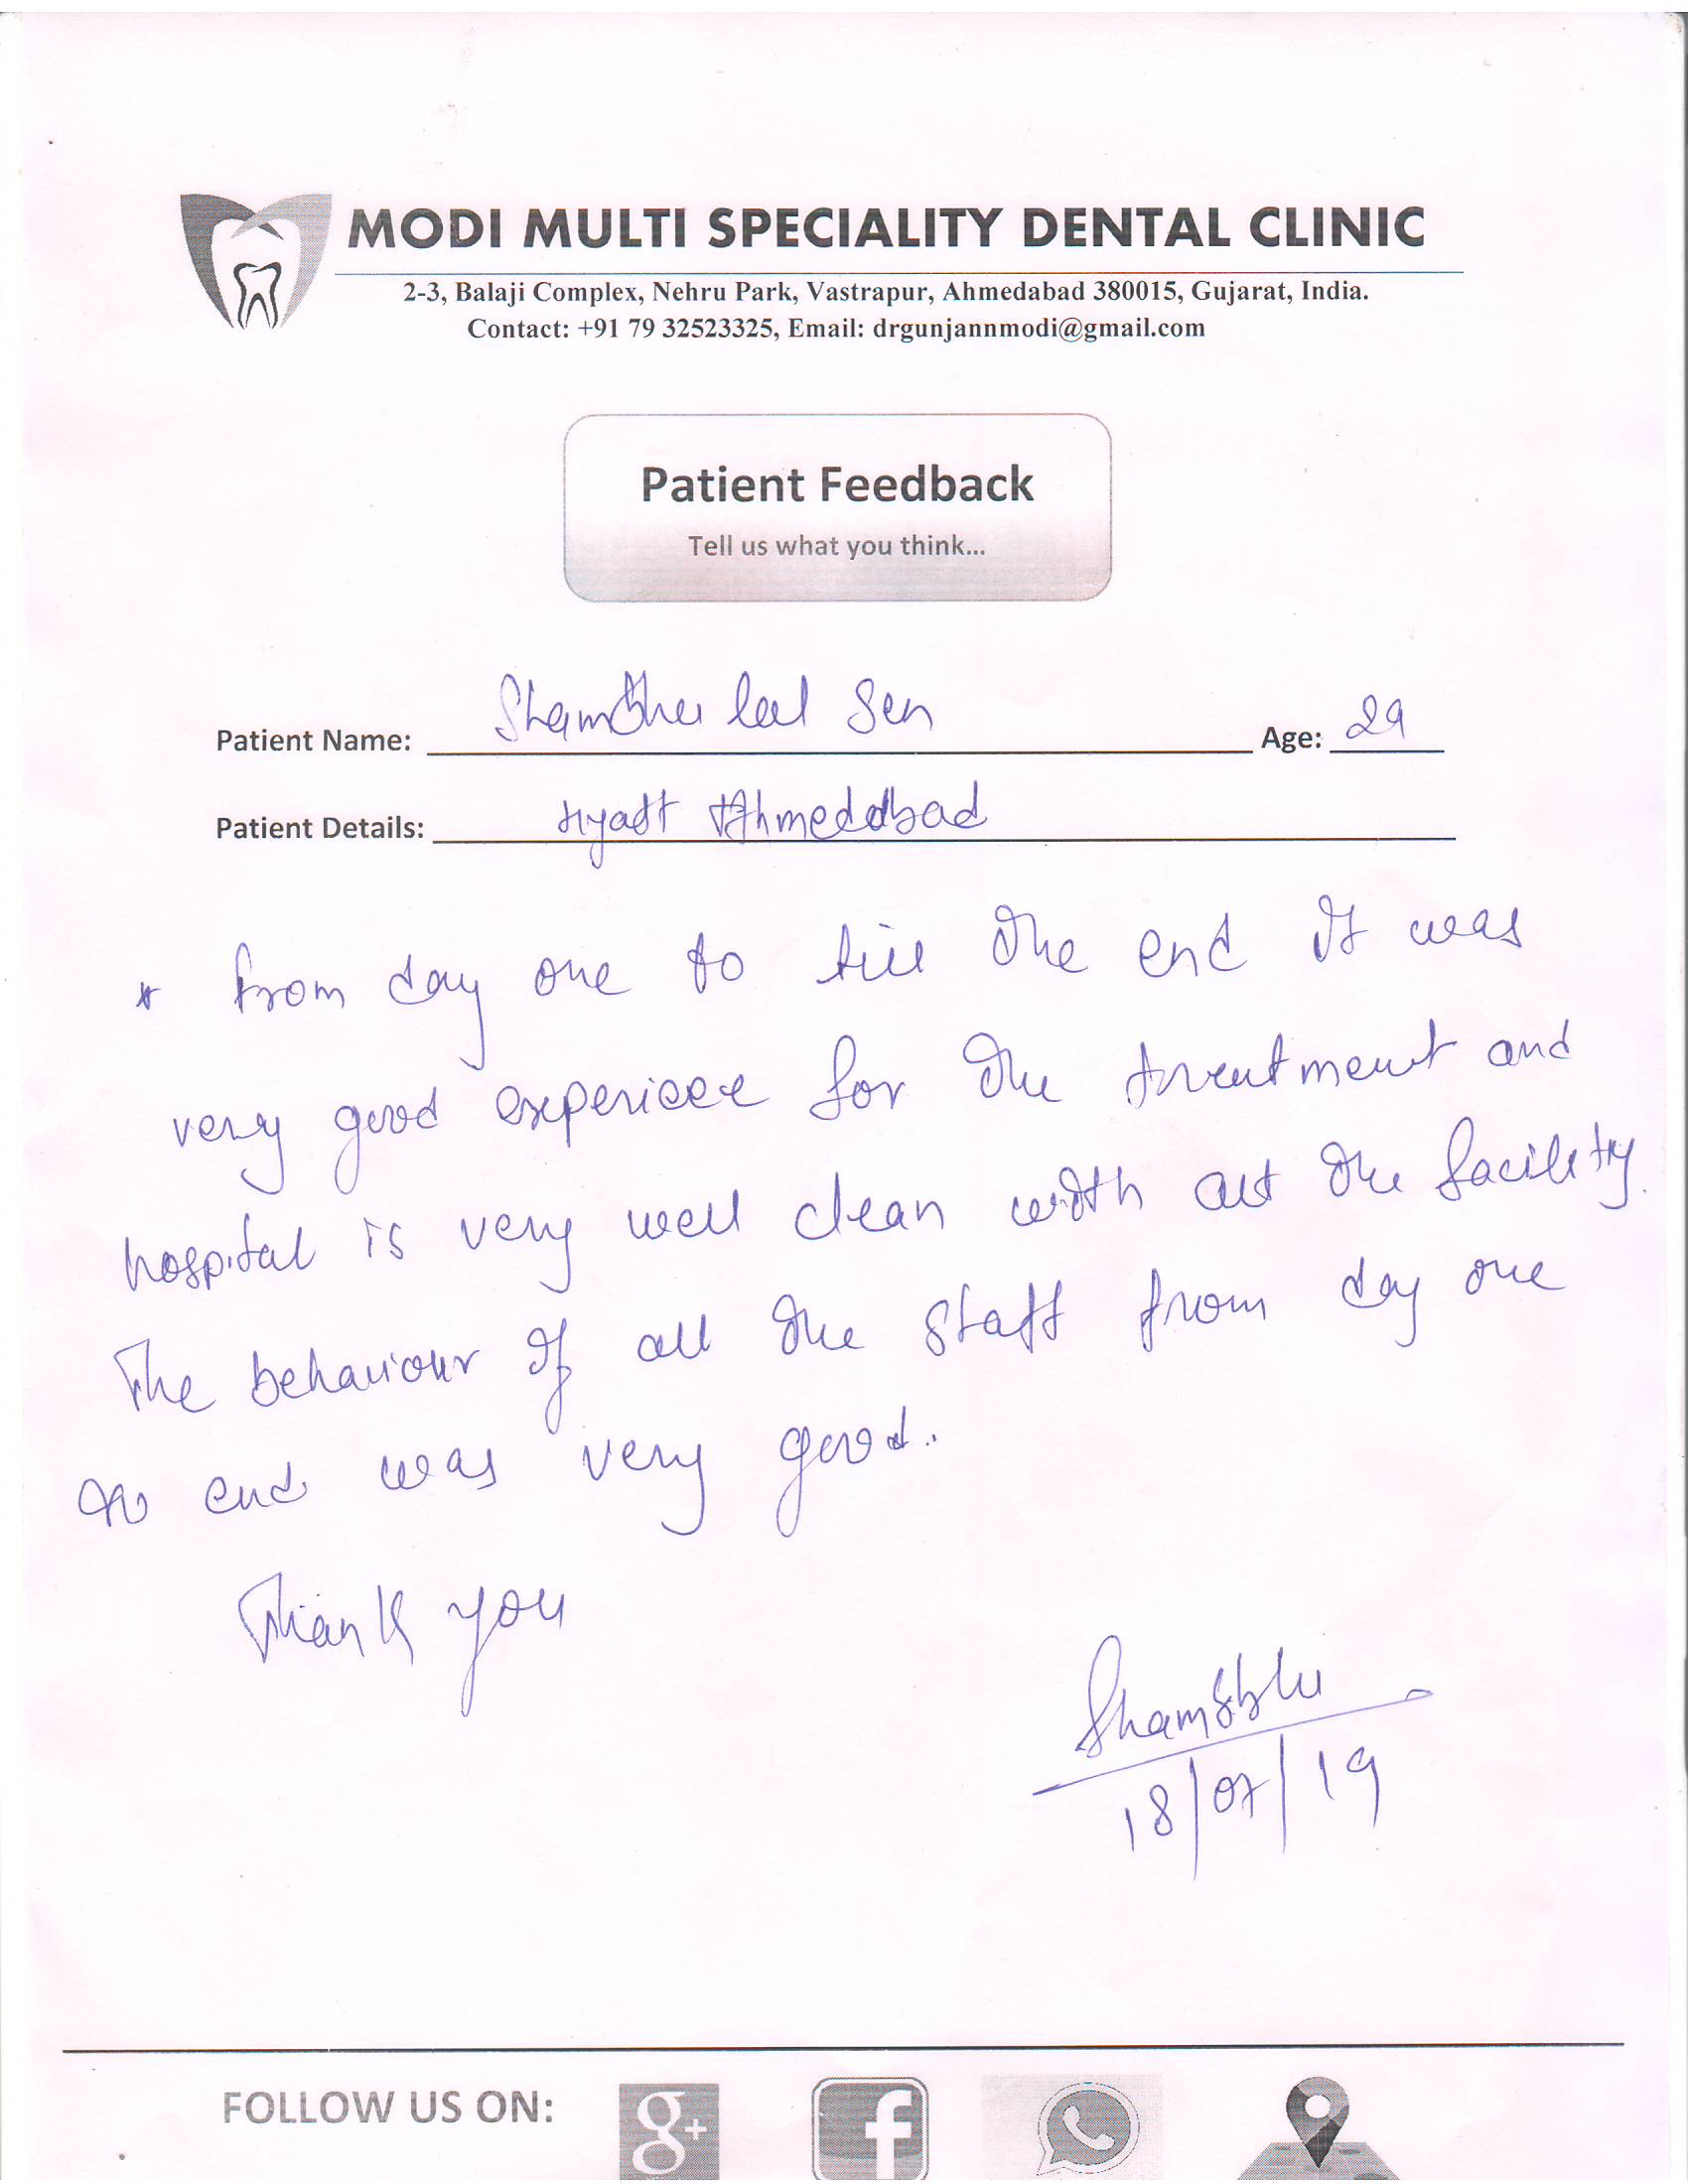 MODI MULTI SPECIALITY DENTAL CLINIC
2-3, Balaji Complex, Nehru Park, Vastrapur, Ahmedabad 380015, Gujarat, India.
Contact: +91 79 32523325, Email: drgunjannmodi@gmail.com
Patient Feedback
Tell us what you think...
Patient Name: Shambhu lal Sen Age: 29
Patient Details: Hyatt Ahmedabad
* from day one to till the end It was
very good experiece for the treatment and
hospital is very well clean with all the facility.
The behaviour of all the staff from day one
to end was very good.
Thank you
Shambhu
18/07/19
FOLLOW US ON:
g+
f